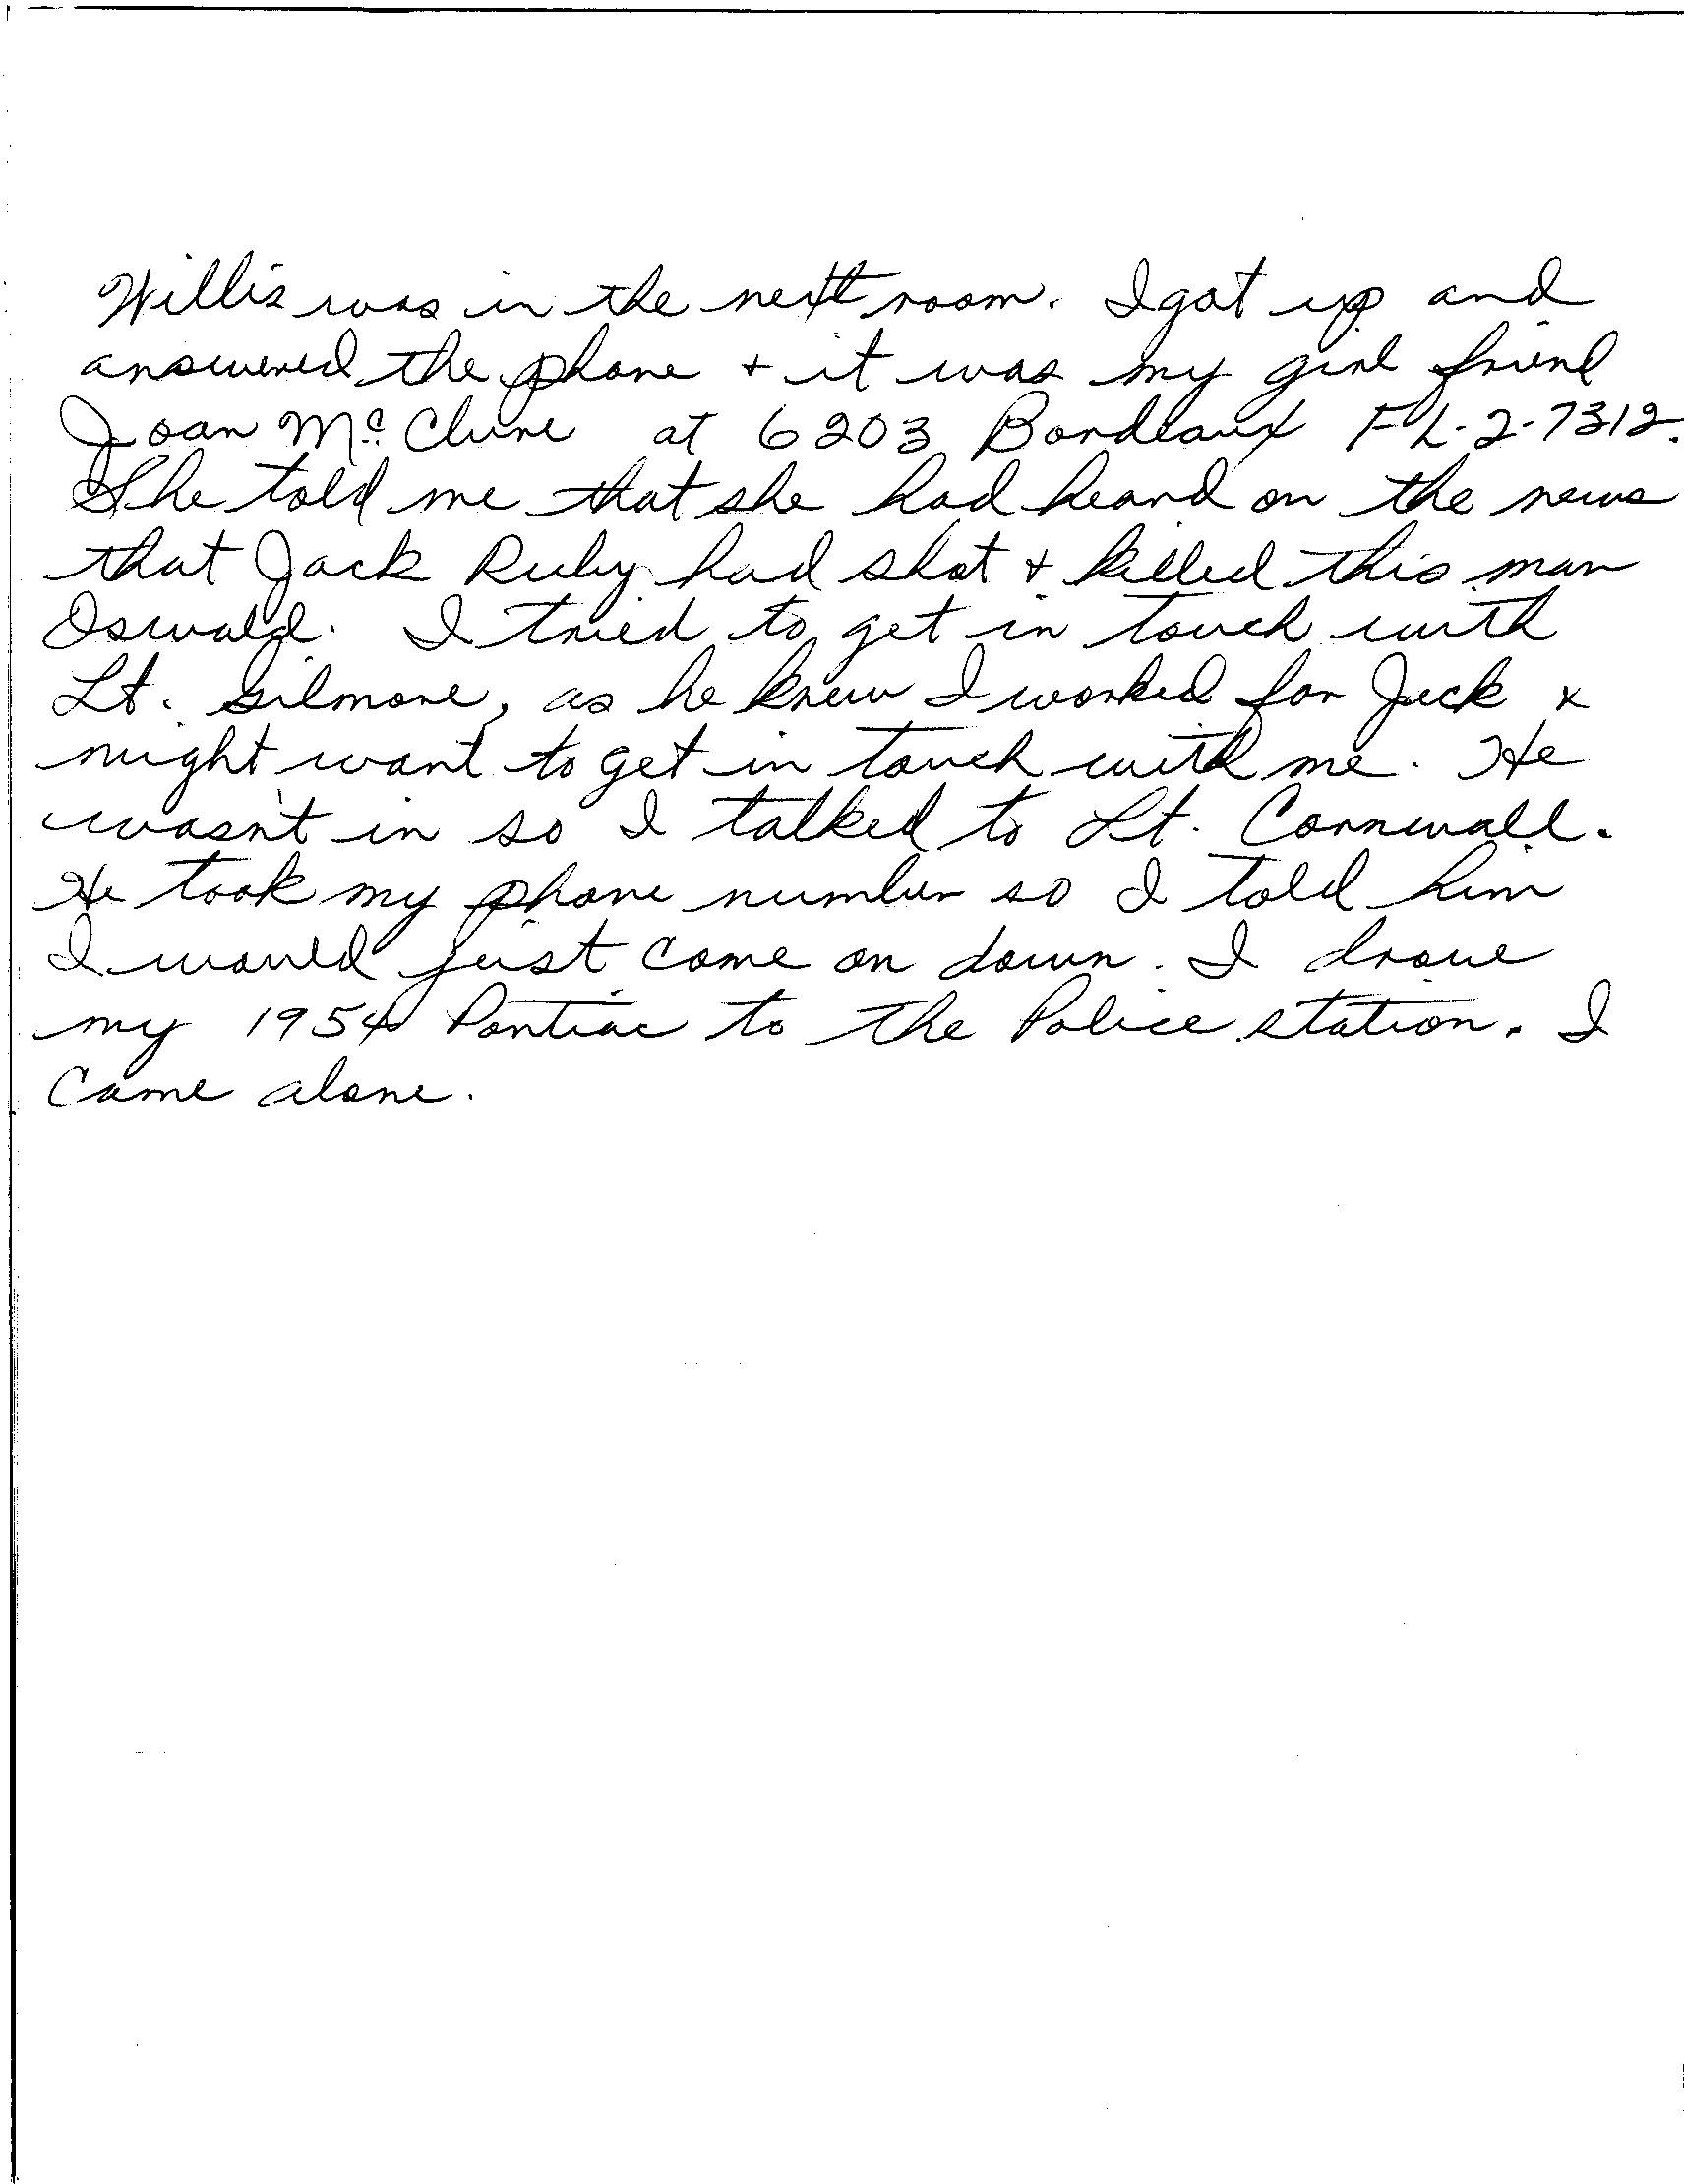 Willis was in the next room. I got up and
answered the phone + it was my girl friend
Joan McClure at 6203 Bordeaux FL-2-7312.
She told me that she had heard on the news
that Jack Ruby had shot + killed this man
Oswald. I tried to get in touch with
Lt. Gilmore, as he knew I worked for Jack +
might want to get in touch with me. He
wasn't in so I talked to Lt. Cornwall.
He took my phone number so I told him
I would just come on down. I drove
my 1954 Pontiac to the Police station. I
came alone.